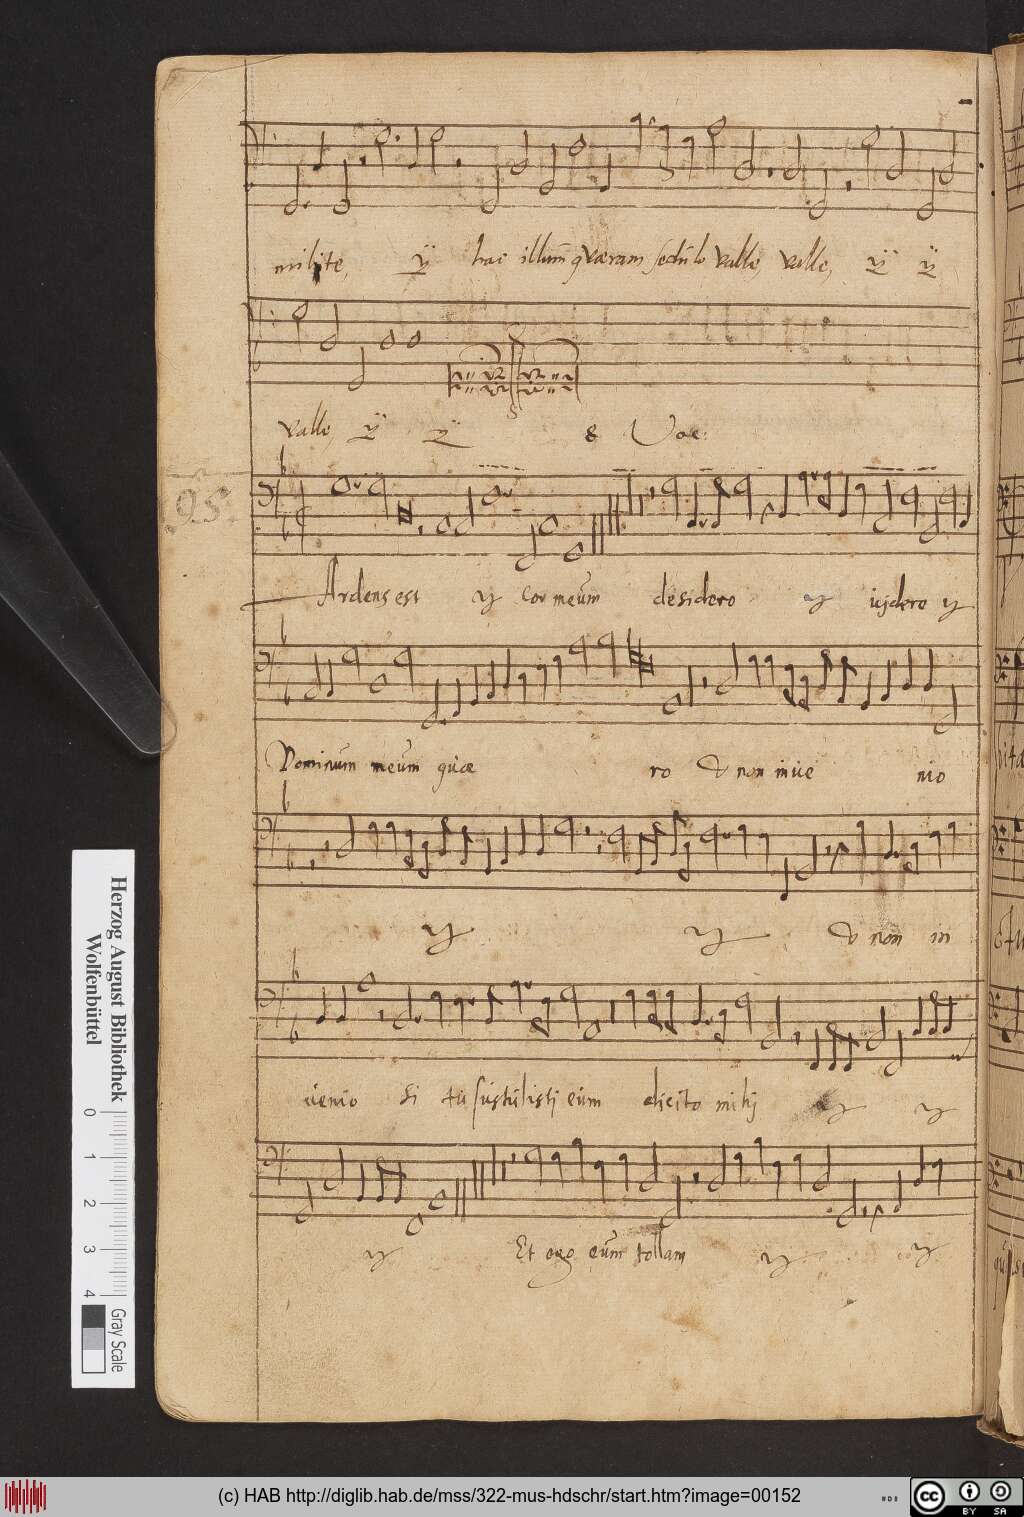 milite, ij hac illum quæram sedulo valle, valle, ij ij
valle, ij ij & Voe:
95.
Ardens est ij Cor meum desidero ij iijdero ij
Dominum meum quæ ro & non inue nio
ij ij & non in
uenio si tu sustulisti eum dicito mihj ij ij
ij Et ego eum tollam ij ij
Herzog August Bibliothek
Wolfenbüttel
0 1 2 3 4
Gray Scale
(c) HAB http://diglib.hab.de/mss/322-mus-hdschr/start.htm?image=00152
cc BY SA